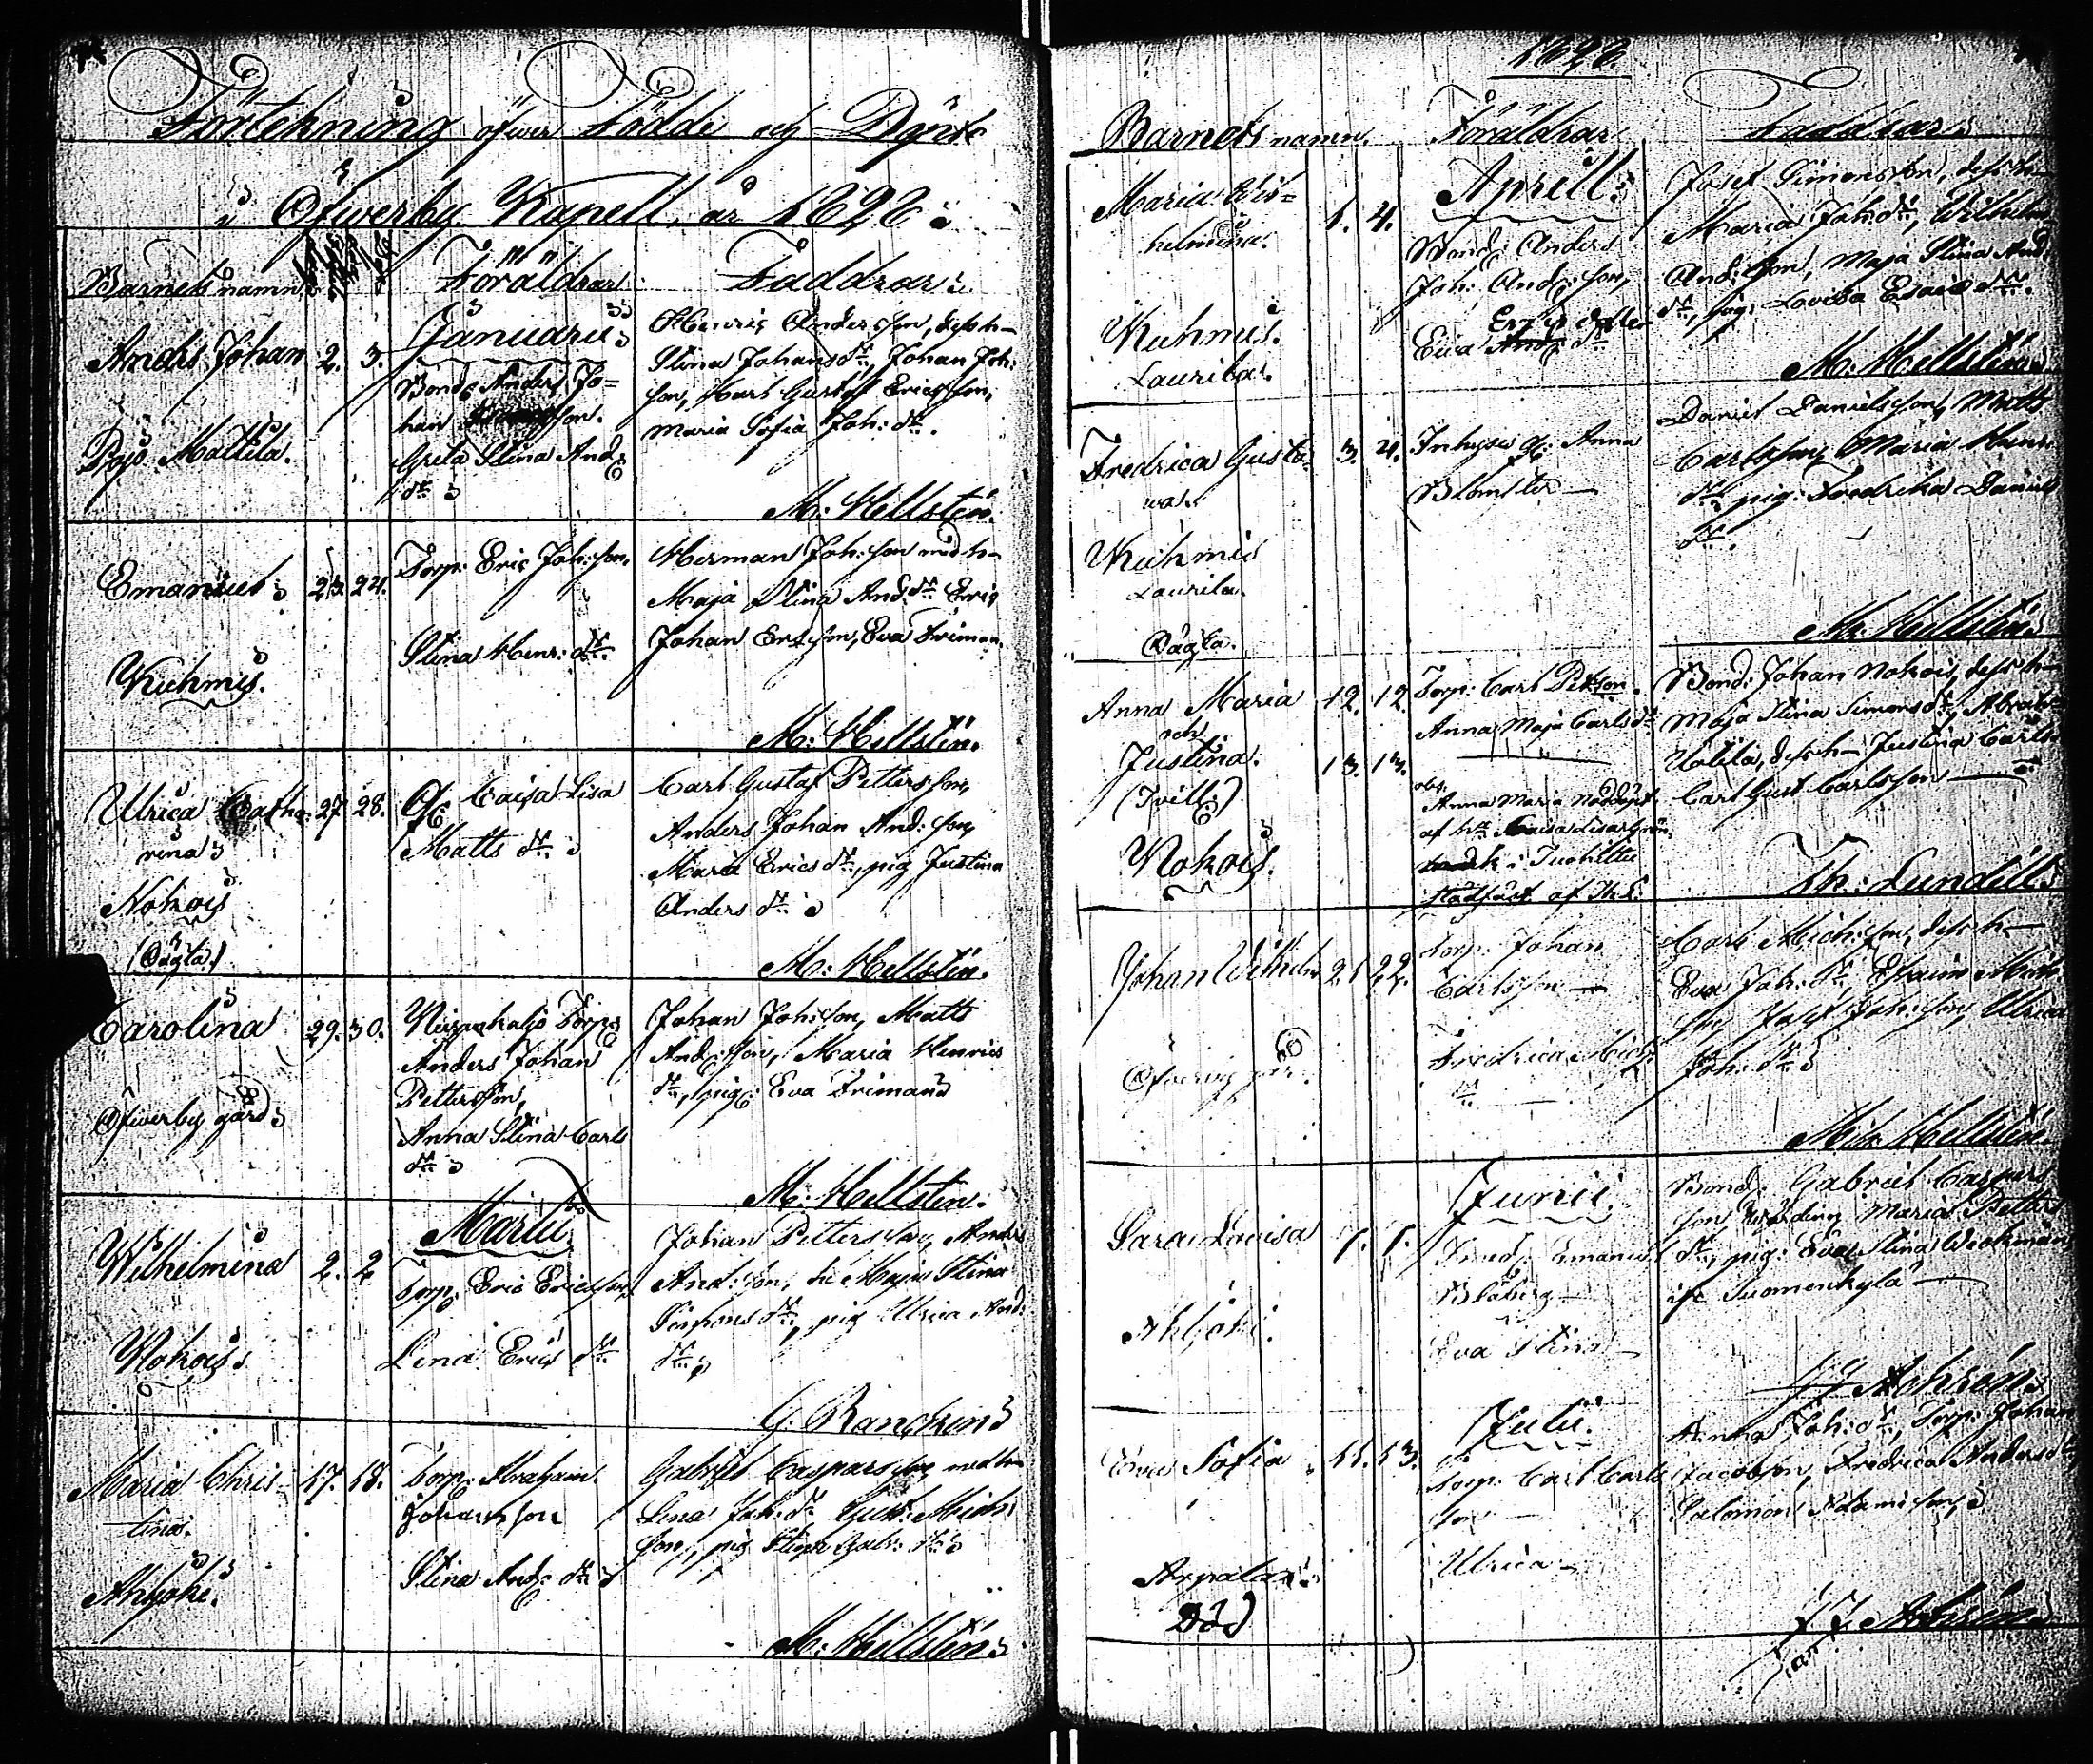 Förtekning öfwer Födde och Döpte
i Öfwerby Kapell år 1828
Barnets namn Föräldrar Faddrar
Januarii
Anders Johan 2. 3.
Pajo Mattila.
Bond: Anders Jo-
han son.
Greta Stina And:
dr
Henric Andersson, dess h-
Stina Johans dr, Johan Joh:
son, Carl Gustaf Ericsson,
Maria Sofia Joh: dr.
M: Hellstén.
Emanuel 23. 24.
Kuhmis.
Torp: Eric Joh: son.
Stina Henr: dr.
Herman Joh: son med h-
Maja Stina And: dr Eric
Johan Ericsson, Eva Friman.
M: Hellstén.
Ulrica Catha- 27. 28.
rina
Nokois
(Oägta)
Caisa Lisa
Matts dr
Carl Gustaf Pettersson,
Anders Johan And: son,
Maria Erics dr, pig Justina
Anders dr
M: Hellstén.
Carolina 29. 30.
Öfwerby gård
Torp:
Anders Johan
Pettersson,
Anna Stina Carls
dr
Johan Joh: son, Matts
And: son, Maria Henrics
dr, pig: Eva Friman
M: Hellstén.
Martii
Wilhelmina 2. 2.
Nokois
Torp: Eric Ericsson,
Lena Erics dr
Johan Pettersson, Anders
And: son, Maja Stina
dr, pig Ulrica And:
dr
G. Rancken
Maria Chris- 17. 18.
tina.
Ahljoki.
Torp: Abraham
Johansson
Stina And: dr
Gabriel Casparsson med h-
Lena Joh: dr Gust: Mich:
son, pig Stina Gabr: dr
M: Hellstén
1828.
Barnets namn. Föräldrar Faddrar
Aprill:
Maria Wil- 1. 4.
helmina.
Kuhmis.
Laurila.
Bond: Anders
Joh: And: son,
Eva dr
Josef Simonsson, dess h-
Maria Joh: dr, Wilhelm
And: son, Maja Stina And:
dr, pig: Lovisa Esaie dr.
M: Hellstén
Fredrica Gusta- 3. 4.
wa.
Kuhmis
Laurila.
Oägta.
Inhyses Anna
Blomster
Daniel Danielsson, Matts
Carlsson, Maria Henr:
dr pig: Fredrika Daniels
dr.
M: Hellstén
Anna Maria 12. 12.
och
Justina. 13. 13.
(Tvill:)
Nokois.
Torp: Carl Petterson.
Anna Maja Carls dr
obs.
Anna Maria Nöddöpt
af
i Tuohittu
Stadfäst af Th L:
Bond: Johan Nokois, dess h-
Maja Stina Simons dr, Abrah:
dess h- Justina Carls
Carl Gust Carlsson
Th: Lundell
Johan Wilhelm 21 22.
Öfwerby går.
Torp: Johan
Carlsson
Fredrica Mich:
dr
Carl Mich: son, dess h-
Eva Joh: dr, Efraim Mich:
son Josef Joh: son, Ulrica
Joh: dr
M: Hellstén
Junii
Sara Lovisa 1. 1.
Ahljoki.
Emanuel
Blåberg
Eva Stina
Bond: Gabriel Caspars
son, Maria Petters
dr, pig: Eva Stina
ifr Suomenkylä
Julii.
Eva Sofia 11. 13.
Död
Torp: Carl Carls
son
Ulrica
Anna Joh: dr, Torp: Johan
Jacobson, Fredrica Anders dr,
Salomon Adamsson,